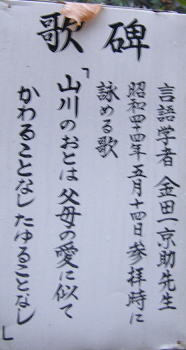 歌碑
言語学者 金田一京助先生
昭和四十四年五月十四日参拝時に
詠める歌
「山川のおとは父母の愛に似て
かわることなし たゆることなし」